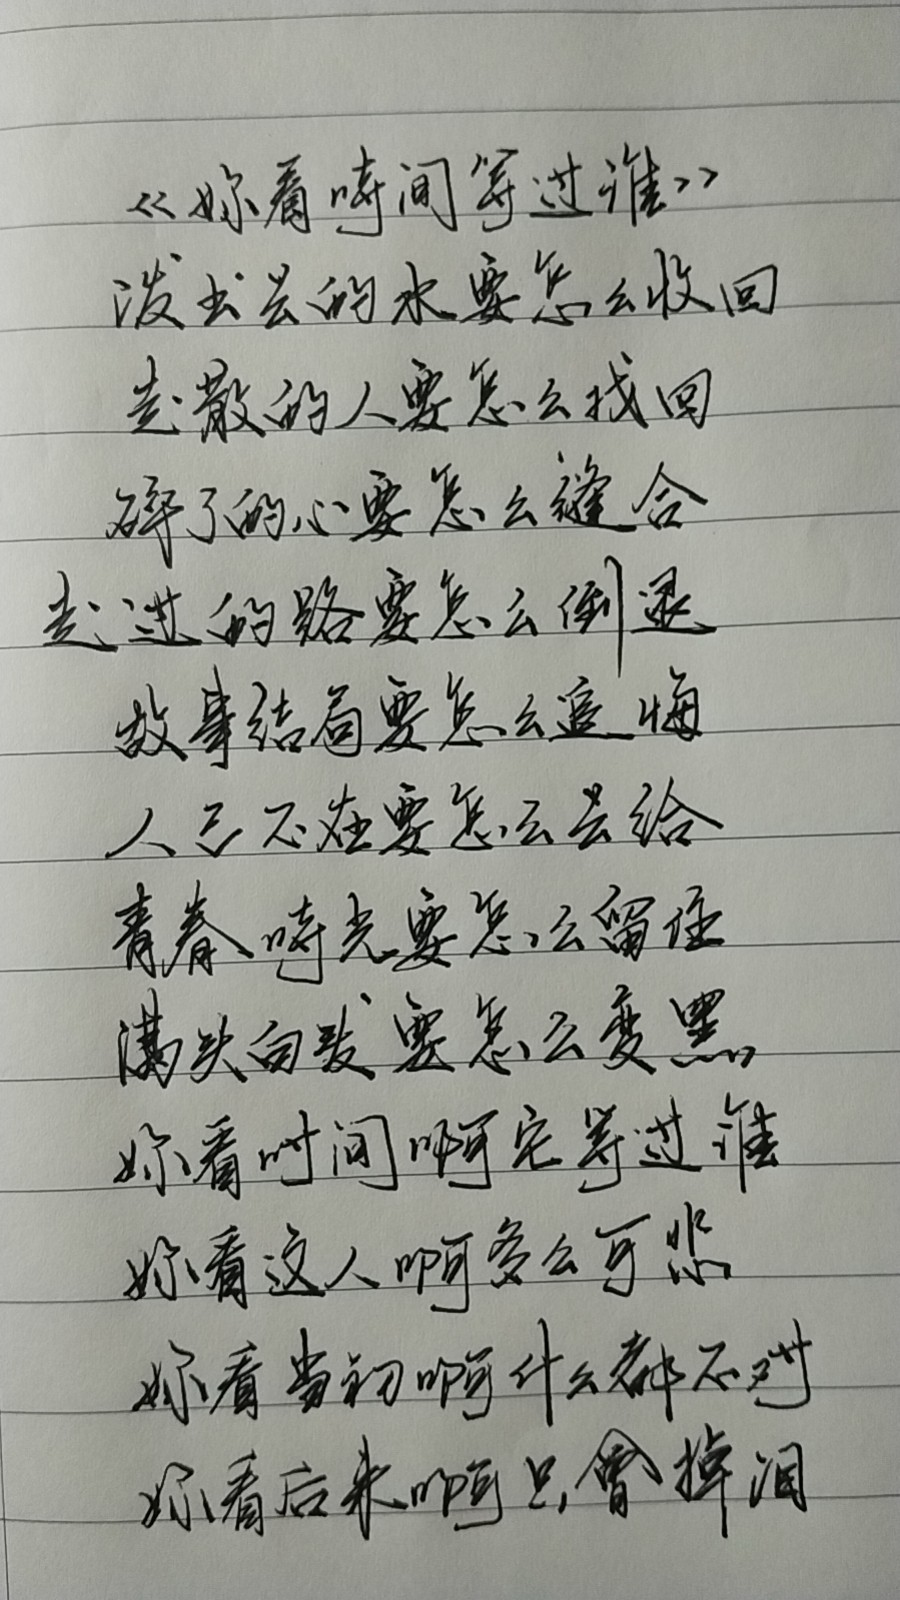 《妳看時间等过谁》
泼出去的水要怎么收回
走散的人要怎么找回
碎了的心要怎么缝合
走过的路要怎么倒退
故事结局要怎么追悔
人已不在要怎么去给
青春時光要怎么留住
满头白发要怎么变黑
妳看时间啊它等过谁
妳看这人啊多么可悲
妳看当初啊什么都不对
妳看后来啊只會掉泪